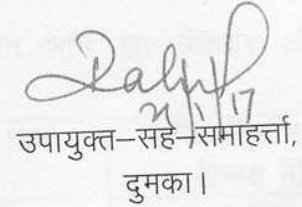 24/1/17
उपायुक्त–सह–समाहर्त्ता,
दुमका।